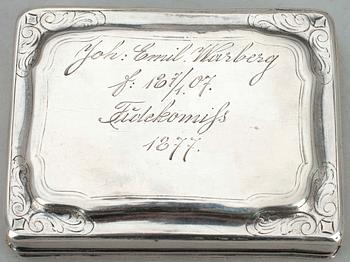 Joh: Emil. Warberg
f: 18 7/1. 07.
Fidekomiss
1877.